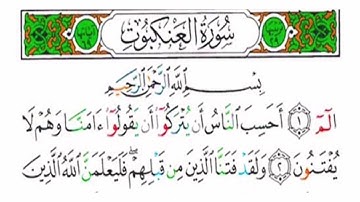 سُورَةُ العَنكَبُوتِ
بِسْمِ اللَّهِ الرَّحْمَٰنِ الرَّحِيمِ
الٓمٓ ١ أَحَسِبَ النَّاسُ أَن يُتْرَكُوٓا۟ أَن يَقُولُوٓا۟ ءَامَنَّا وَهُمْ لَا
يُفْتَنُونَ ٢ وَلَقَدْ فَتَنَّا الَّذِينَ مِن قَبْلِهِمْ ۖ فَلَيَعْلَمَنَّ اللَّهُ الَّذِينَ